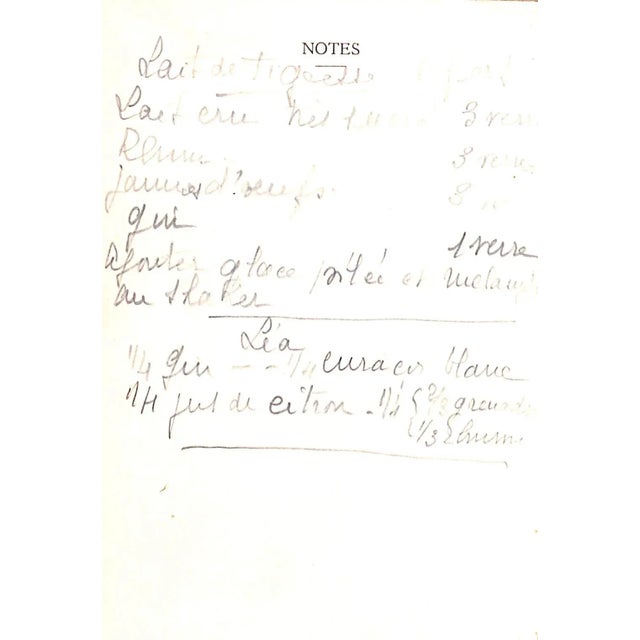 NOTES
Lait de tigresse
Lait cru très 3 verre
Rhum 3 verres
jaunes d'œufs 3
gin 1 verre
Ajouter glace pilée et mélang
au shaker
Léa
1/4 gin - - 1/4 curaçao blanc
1/4 jus de citron - 1/4 { 2/3 grenadi
{ 1/3 Rhum